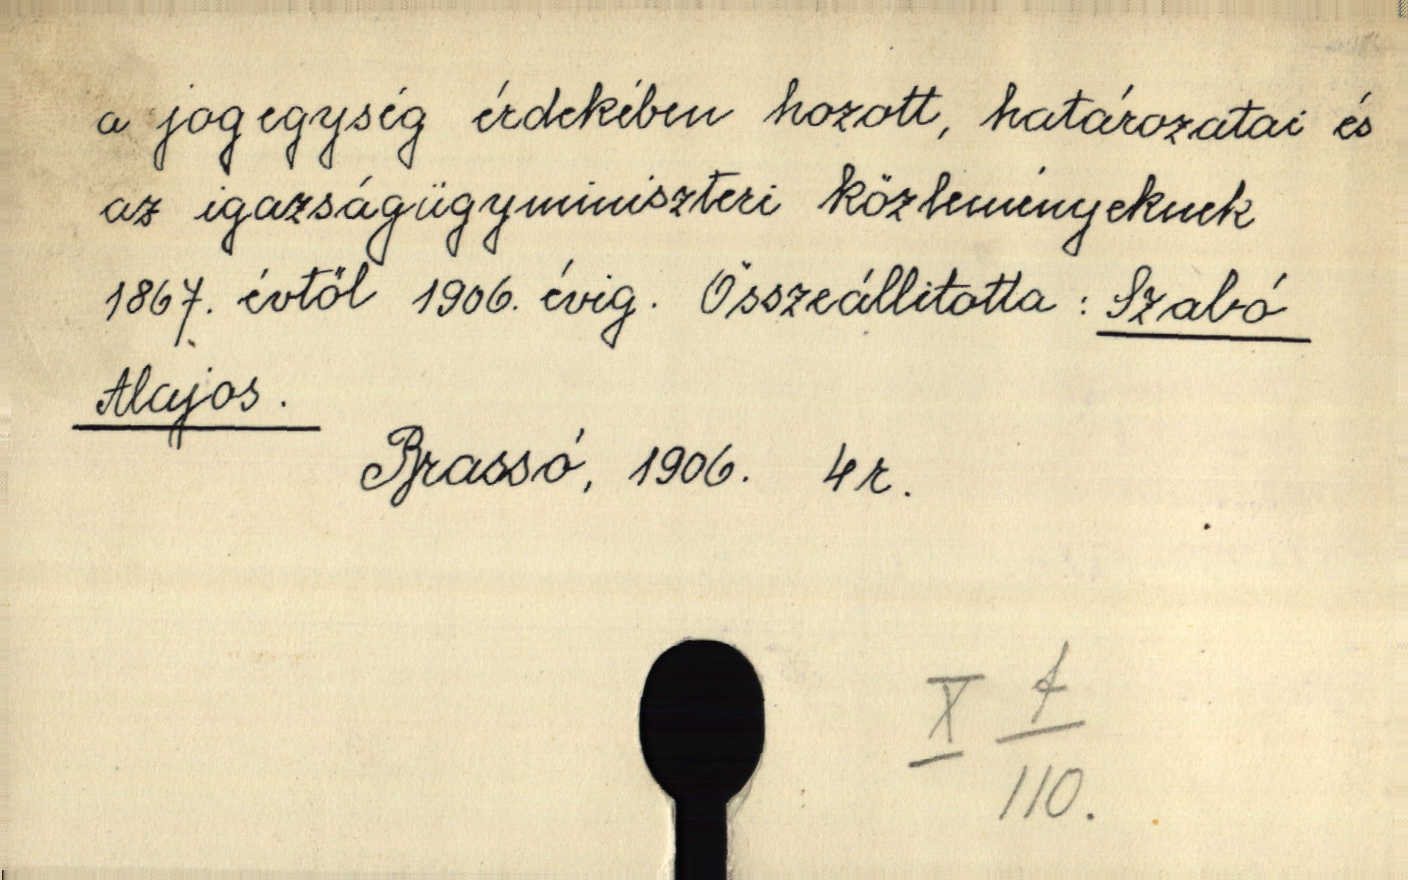 a jogegység érdekében hozott, határozatai és
az igazságügyminiszteri közleményeknek
1867. évtől 1906. évig. Összeállitotta : Szabó
Alajos.
Brassó, 1906. 4r.
X
110.